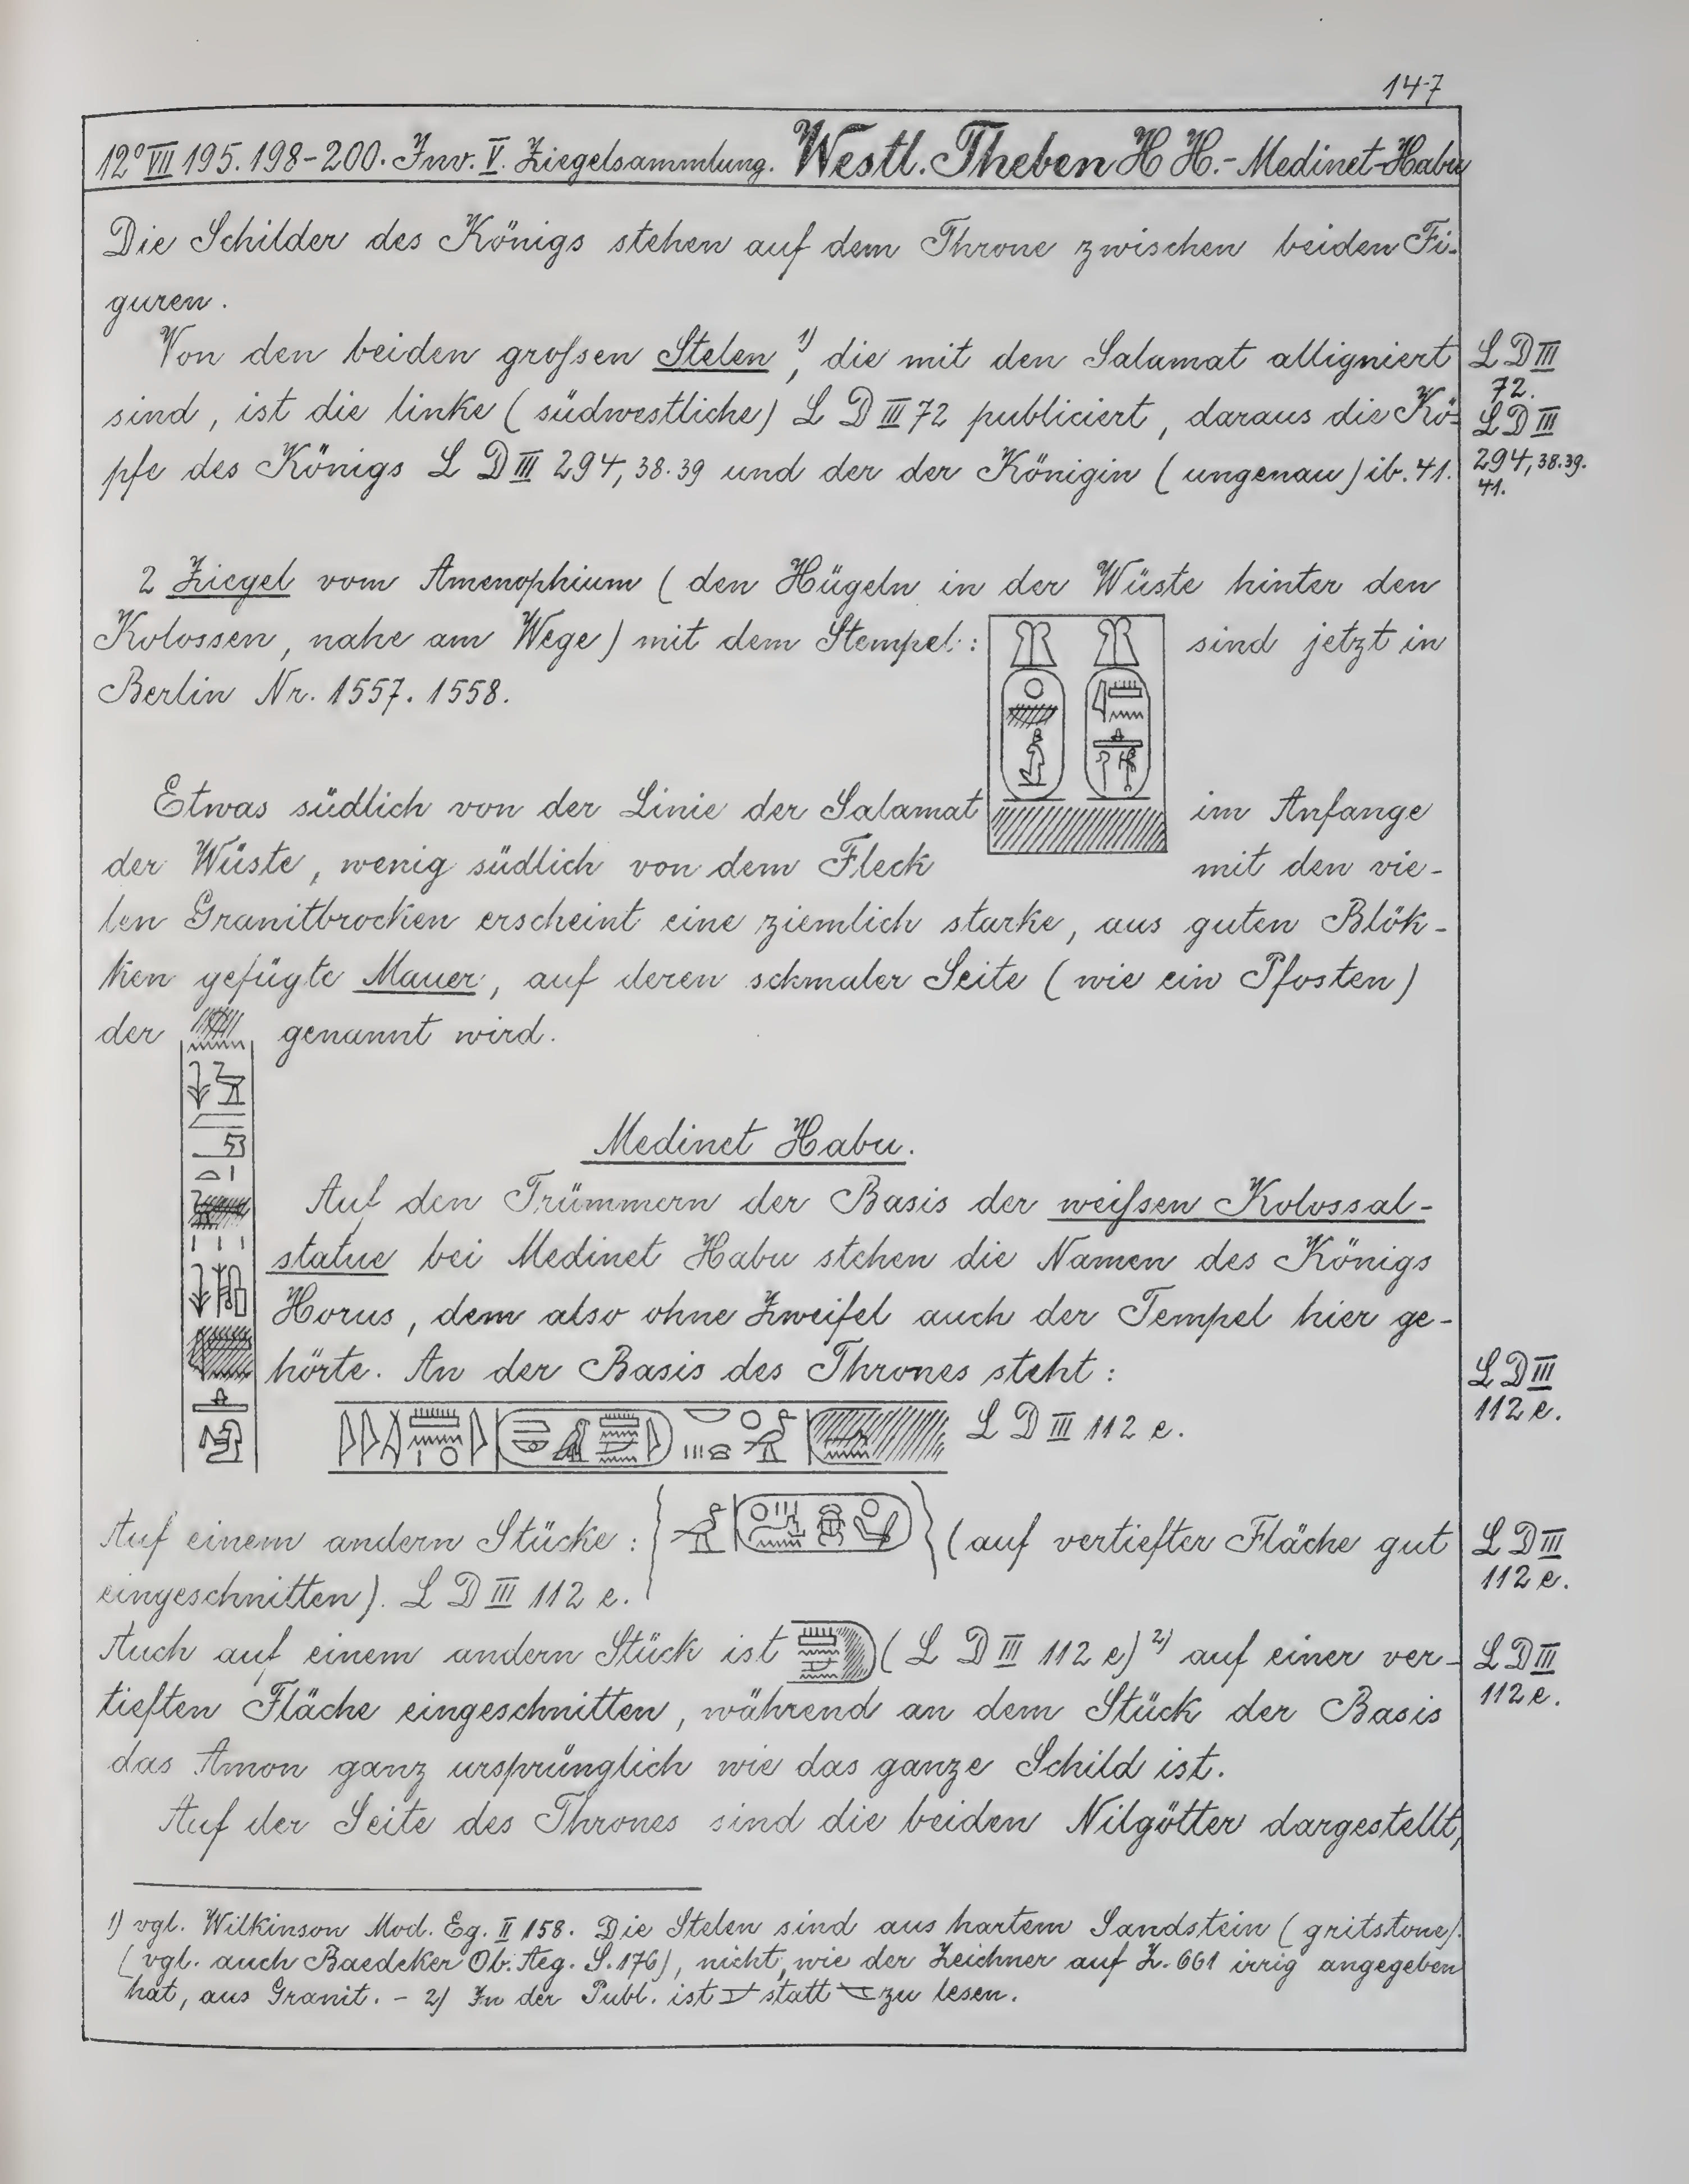 147
12° VII 195. 198-200. Inv. V. Ziegelsammlung. Westl. Theben H H.- Medinet-Habu
Die Schilder des Königs stehen auf dem Throne zwischen beiden Fi-
guren.
Von den beiden großen Stelen 1), die mit den Salamat alligniert
LD III
72.
sind, ist die linke (südwestliche) L D III 72 publiciert, daraus die Kö-
LD III
pfe des Königs L D III 294, 38.39 und der der Königin (ungenau) ib. 41.
294, 38.39.
41.
2 Ziegel vom Amenophium (den Hügeln in der Wüste hinter den
Kolossen, nahe am Wege) mit dem Stempel: sind jetzt in
Berlin Nr. 1557. 1558.
Etwas südlich von der Linie der Salamat im Anfange
der Wüste, wenig südlich von dem Fleck mit den vie-
len Granitbrocken erscheint eine ziemlich starke, aus guten Blök-
ken gefügte Mauer, auf deren schmaler Seite (wie ein Pfosten)
der genannt wird.
Medinet Habu.
Auf den Trümmern der Basis der weißen Kolossal-
statue bei Medinet Habu stehen die Namen des Königs
Horus, dem also ohne Zweifel auch der Tempel hier ge-
hörte. An der Basis des Thrones steht:
LD III
112 e.
L D III 112 e.
Auf einem andern Stücke: (auf vertiefter Fläche gut
LD III
112 e.
eingeschnitten). L D III 112 e.
Auch auf einem andern Stück ist (L D III 112 e) 2) auf einer ver-
LD III
112 e.
tieften Fläche eingeschnitten, während an dem Stück der Basis
das Amon ganz ursprünglich wie das ganze Schild ist.
Auf der Seite des Thrones sind die beiden Nilgötter dargestellt,
1) vgl. Wilkinson Mod. Eg. II 158. Die Stelen sind aus hartem Sandstein (gritstone).
(vgl. auch Baedeker Ob. Aeg. S. 176), nicht, wie der Zeichner auf Z. 661 irrig angegeben
hat, aus Granit. - 2) In der Publ. ist statt zu lesen.